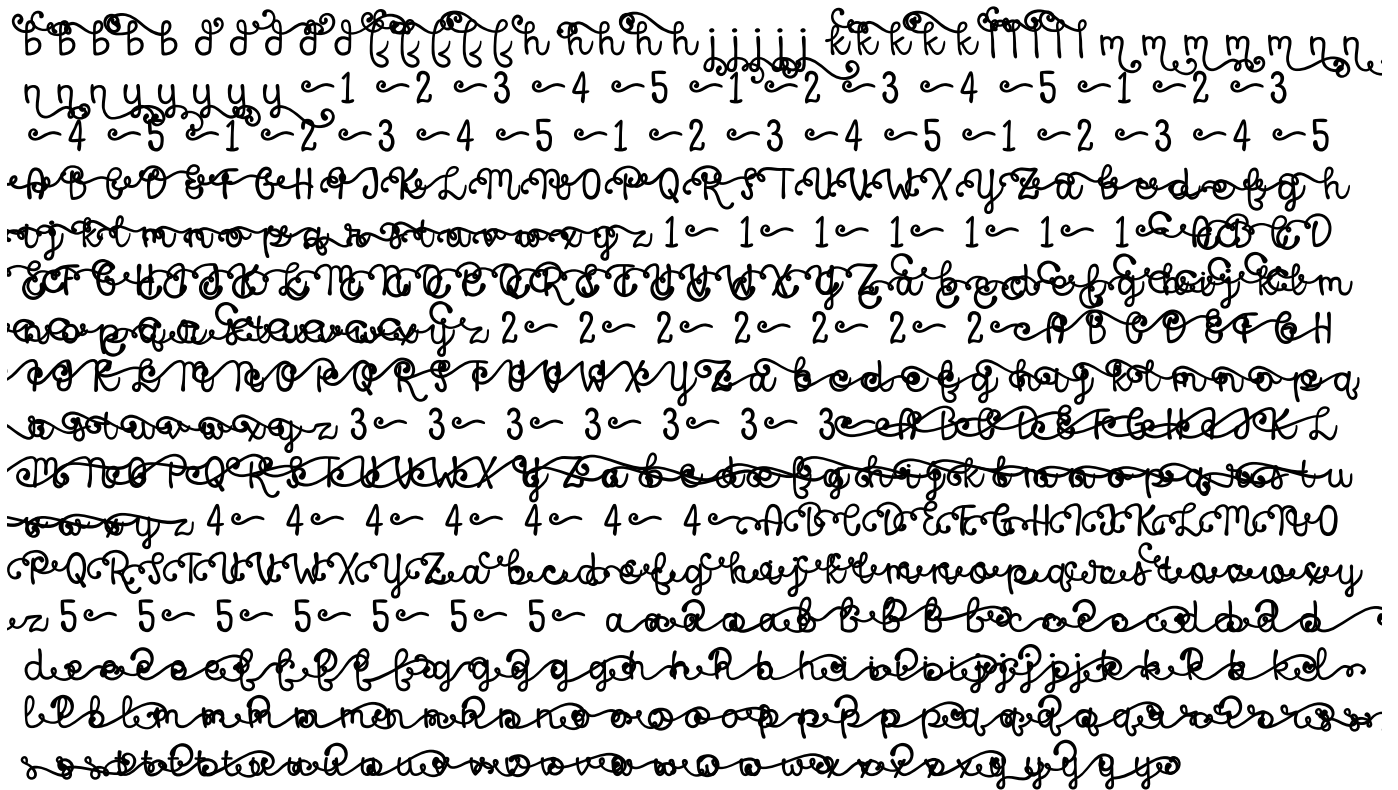 b b b b b d d d d d f f f f f h h h h h j j j j j k k k k k l l l l l m m m m m n n
n n n y y y y y ~1 ~2 ~3 ~4 ~5 ~1 ~2 ~3 ~4 ~5 ~1 ~2 ~3
~4 ~5 ~1 ~2 ~3 ~4 ~5 ~1 ~2 ~3 ~4 ~5 ~1 ~2 ~3 ~4 ~5
A B C D E F G H I J K L M N O P Q R S T U V W X Y Z a b c d e f g h
i j k l m n o p q r s t u v w x y z 1~ 1~ 1~ 1~ 1~ 1~ 1~ A B C D
E F G H I J K L M N O P Q R S T U V W X Y Z a b c d e f g h i j k l m
n o p q r s t u v w x y z 2~ 2~ 2~ 2~ 2~ 2~ 2~ A B C D E F G H
I J K L M N O P Q R S T U V W X Y Z a b c d e f g h i j k l m n o p q
r s t u v w x y z 3~ 3~ 3~ 3~ 3~ 3~ 3~ A B C D E F G H I J K L
M N O P Q R S T U V W X Y Z a b c d e f g h i j k l m n o p q r s t u
v w x y z 4~ 4~ 4~ 4~ 4~ 4~ 4~ A B C D E F G H I J K L M N O
P Q R S T U V W X Y Z a b c d e f g h i j k l m n o p q r s t u v w x y
z 5~ 5~ 5~ 5~ 5~ 5~ 5~ a a a a a b b b b b c c c c c d d d d
d e e e e e f f f f f g g g g g h h h h h i i i i i j j j j j k k k k k l
l l l l m m m m m n n n n n o o o o o p p p p p q q q q q r r r r r s s
s s s t t t t t u u u u u v v v v v w w w w w x x x x x y y y y y